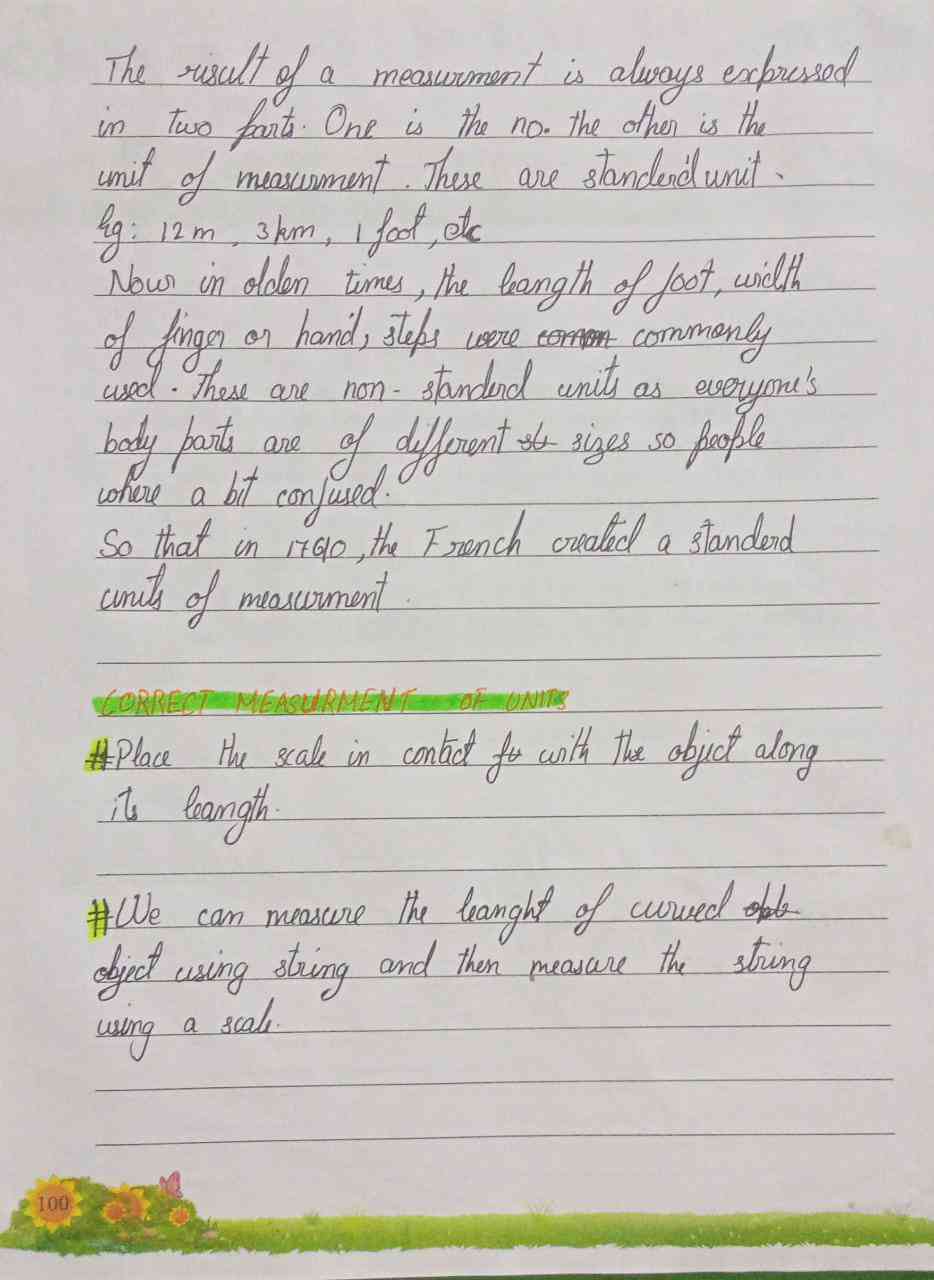 The risult of a measurment is always expressed
in two parts. One is the no. the other is the
unit of measurment. These are standerd unit.
Eg: 12 m, 3 km, 1 foot, etc
Now in olden times, the leangth of foot, width
of finger or hand, steps were common commonly
used. These are non-standerd units as everyone's
body parts are of different sizes so people
where a bit confused.
So that in 1790, the French created a standerd
units of measurment.
CORRECT MEASURMENT OF UNITS
# Place the scale in contact with the object along
its leangth.
# We can measure the leanght of curved
object using string and then measure the string
using a scale.
100